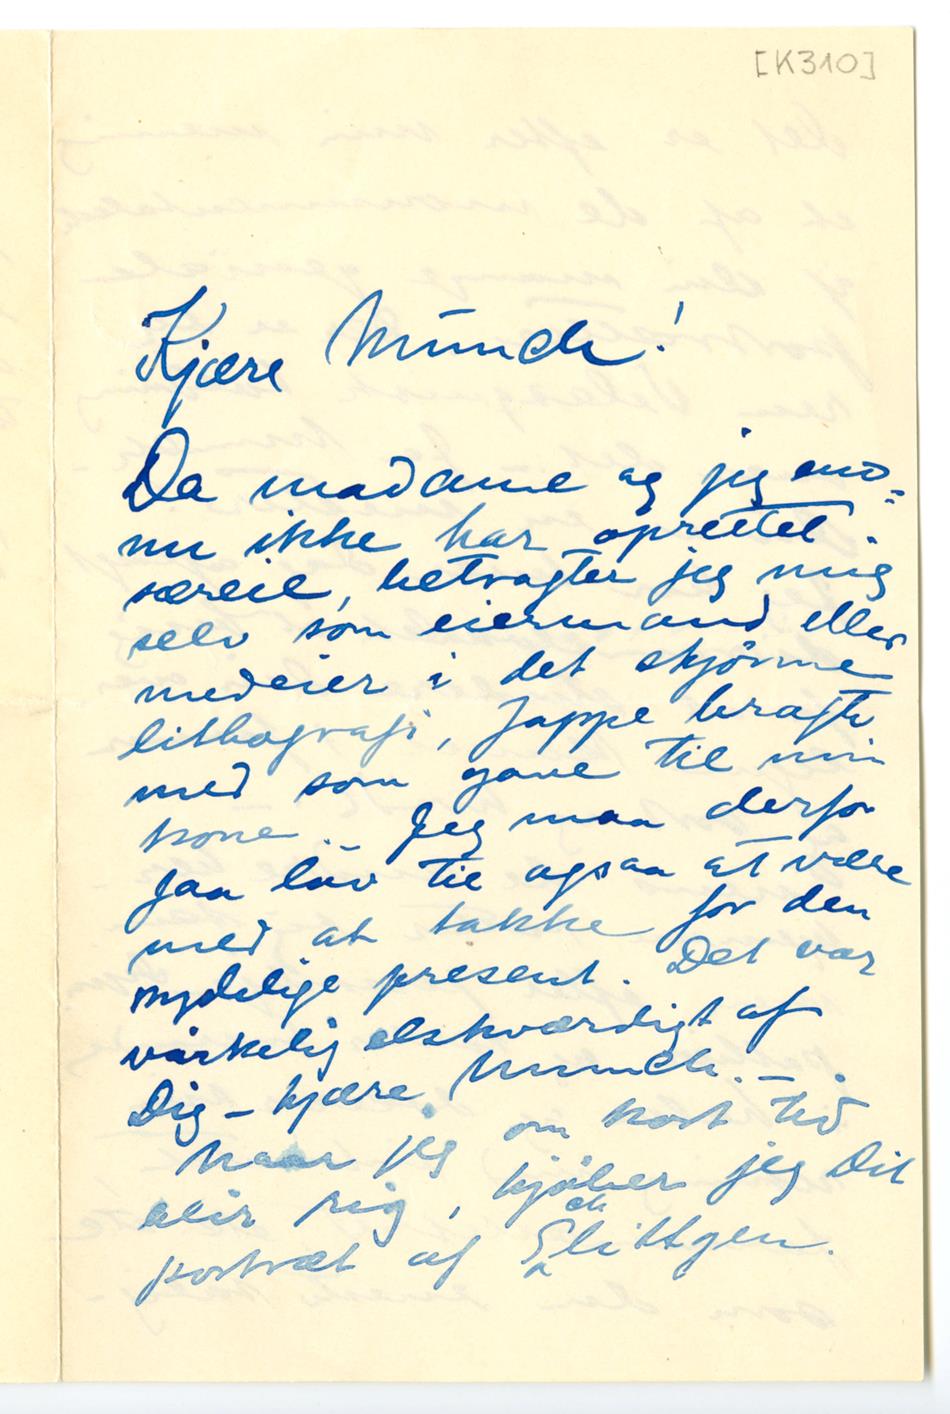 [K310]
Kjære Munch!
Da madame og jeg end=
nu ikke har oprettet
særeie, betragter jeg mig
selv som eiermand eller
medeier i det skjønne
lithografi, Jappe bragte
med som gave til min
kone. Jeg maa derfor
faa lov til ogsaa at være
med at takke for den
nydelige present. Det var
virkelig elskværdigt af
Dig – kjære Munch. –
Naar jeg om kort tid
blir rig, kjøber jeg Dit
portræt af Schlittgen.